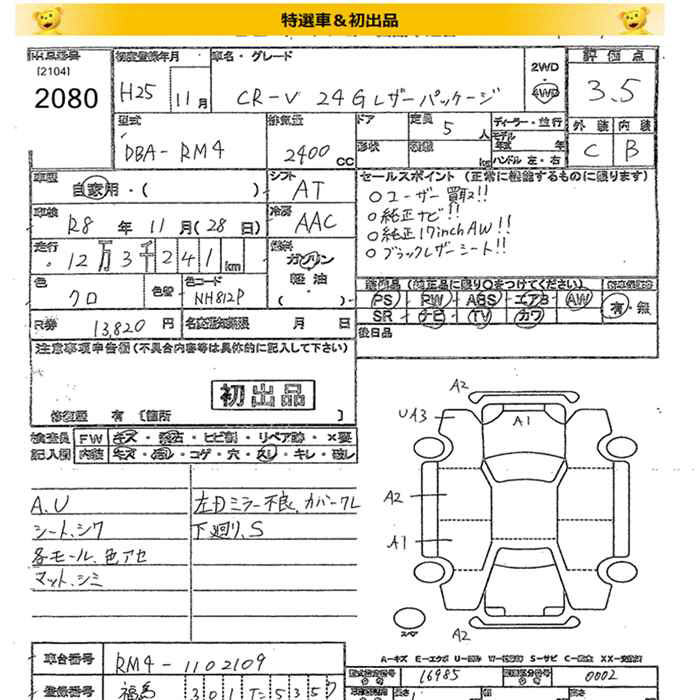 特選車&初出品
(2104)
2080
初度登録年月
H25
11月
車名・グレード
CR-V 24Gレザーパッケージ
2WD
4WD
評価点
3.5
外装 内装
C B
型式
DBA-RM4
排気量
2400 CC
ドア
形状
定員 5 人
kg
ディーラー・並行
モデル年式 年
ハンドル 左・右
車歴
自家用・( )
シフト
AT
車検
R8年11月(28日)
冷房
AAC
走行
12万3千241km
燃料
ガソリン
軽油
( )
色
クロ
色替
色コード
NH812P
R券
13,820円
名義変更期限 月 日
セールスポイント (正常に機能するものに限ります)
○ユーザー買取!!
○純正ナビ!!
○純正17inchAW!!
○ブラックレザーシート!!
装備品(純正品に限り○をつけてください)
PS・PW・ABS・エアB・AW
SR・ナビ・TV・カワ
有・無
後日品
注意事項申告欄(不具合内容等は具体的に記入して下さい)
初出品
修復歴 有〔箇所 〕
検査員 FW キズ・飛石・ヒビ割・リペア跡・×要
記入欄 内装 キズ・汚レ・コゲ・穴・スレ・キレ・破レ
A.U
シート.シワ
各モール.色アセ
マット.シミ
左Dミラー不良、カバーワレ
下廻り.S
A2
UA3
A1
A2
A1
スペア
A2
A-キズ E-エクボ U-凹ミ W-波 S-サビ C-腐食 XX-交換済
車台番号
RM4-1102109
16985
0002
登録番号
福島 301 T-5357